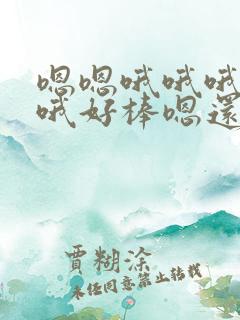 嗯嗯哦哦哦
哦好棒嗯還
賈糊涂
未经同意禁止转载